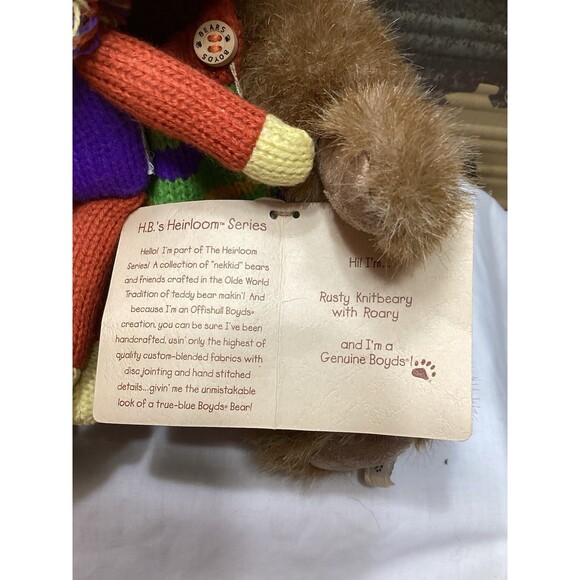 BEARS BOYDS
H.B.'s Heirloom™ Series
Hello! I'm part of The Heirloom
Series! A collection of "nekkid" bears
and friends crafted in the Olde World
Tradition of teddy bear makin'! And
because I'm an Offishull Boyds®
creation, you can be sure I've been
handcrafted, usin' only the highest of
quality custom-blended fabrics with
disc jointing and hand stitched
details...givin' me the unmistakable
look of a true-blue Boyds® Bear!
Hi! I'm...
Rusty Knitbeary
with Roary
and I'm a
Genuine Boyds®!